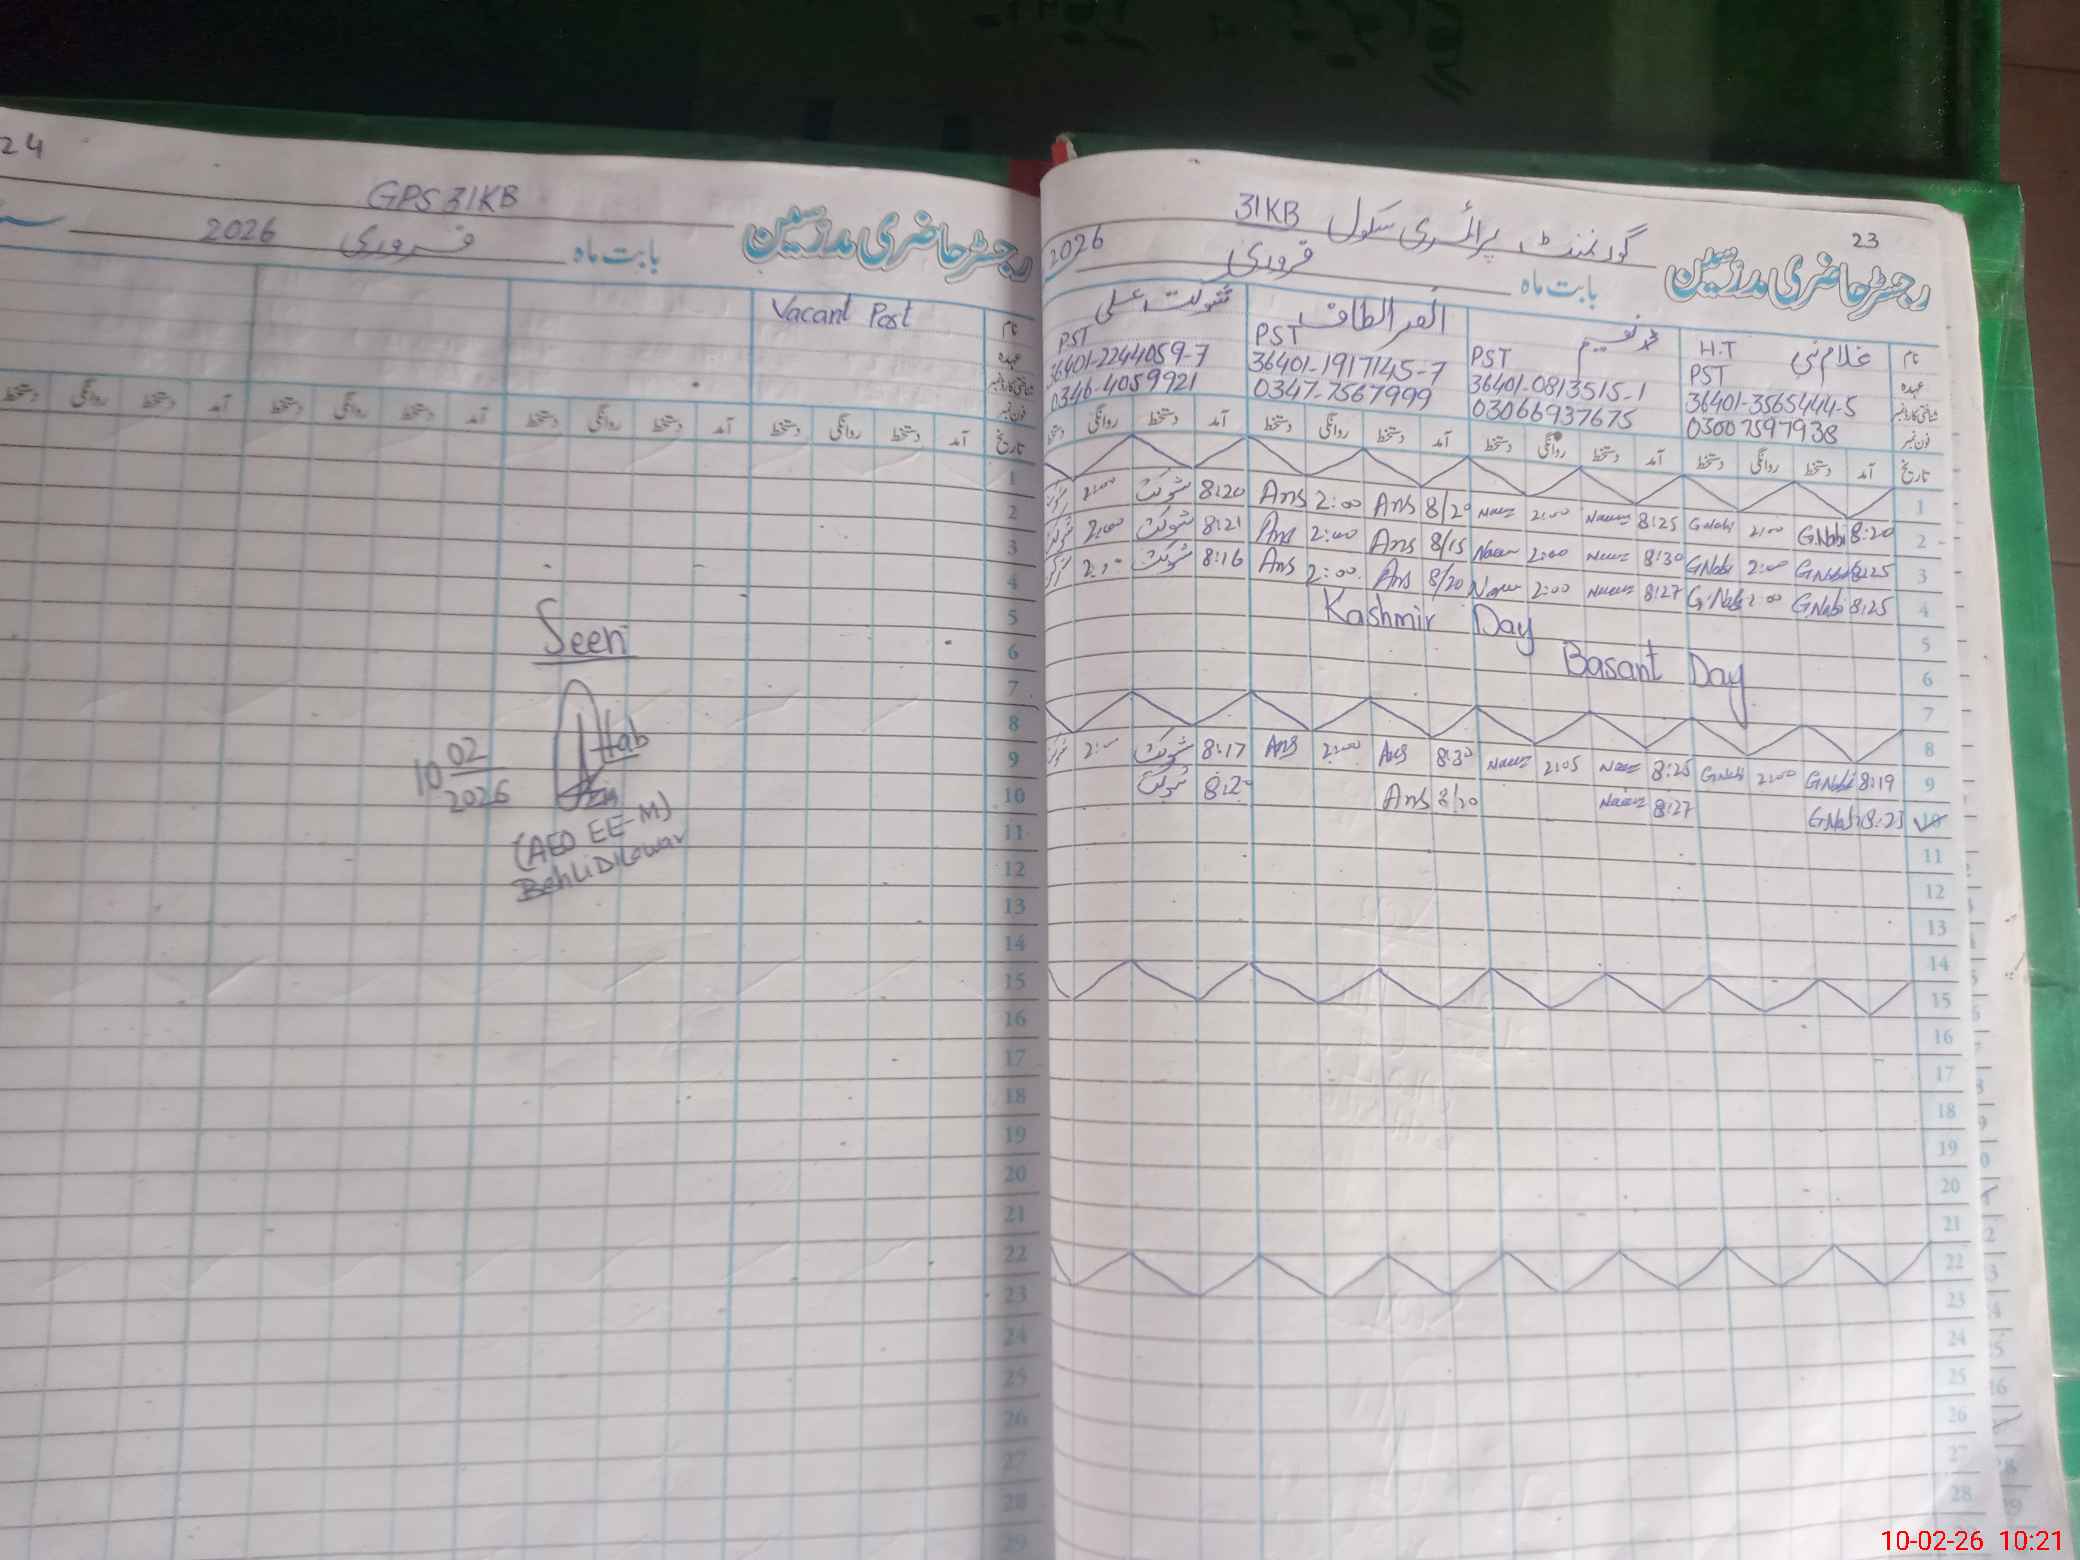 24
GPS 31KB
رجسٹر حاضری مدرسین بابت ماہ فروری 2026
Vacant Post
نام
عہدہ
شناختی کارڈ نمبر
فون نمبر
تاریخ آمد دستخط روانگی دستخط آمد دستخط روانگی دستخط آمد دستخط روانگی دستخط آمد دستخط روانگی دستخط
1
2
3
4
5
Seen
6
7
8
Htab
10 02 2026
9
10
(AEO EE-M)
11
Behli Dilawar
12
13
14
15
16
17
18
19
20
21
22
23
24
25
26
27
28
29
23
گورنمنٹ پرائمری سکول 31KB
رجسٹر حاضری مدرسین بابت ماہ فروری 2026
نام غلام نبی H.T
عہدہ PST PST PST PST
شناختی کارڈ نمبر 36401-3565444-5 36401-0813515-1 36401-1917145-7 36401-2244059-7
فون نمبر 03007597938 03066937675 0347-7567999 0346-4059921
تاریخ آمد دستخط روانگی دستخط آمد دستخط روانگی دستخط آمد دستخط روانگی دستخط آمد دستخط روانگی دستخط
1
2 8:20 G.Nabi 2:00 G.Nabi 8:25 2:00 8/20 Ans 2:00 Ans 8:20 شوکت 2:00
3 8:25 G.Nabi 2:00 G.Nabi 8:30 2:00 8/15 Ans 2:00 Ans 8:21 شوکت 2:00 شوکت
4 8:25 G.Nabi 2:00 G.Nabi 8:27 2:00 8/20 Ans 2:00 Ans 8:16 شوکت 2:00
5 Kashmir Day
6 Basant Day
7
8
9 8:19 G.Nabi 2:00 G.Nabi 8:25 2:05 8:30 Ans 2:00 Ans 8:17 شوکت 2:00
10 8:23 G.Nabi 8:27 8/20 Ans 8:20 شوکت
11
12
13
14
15
16
17
18
19
20
21
22
23
24
25
26
27
28
10-02-26 10:21